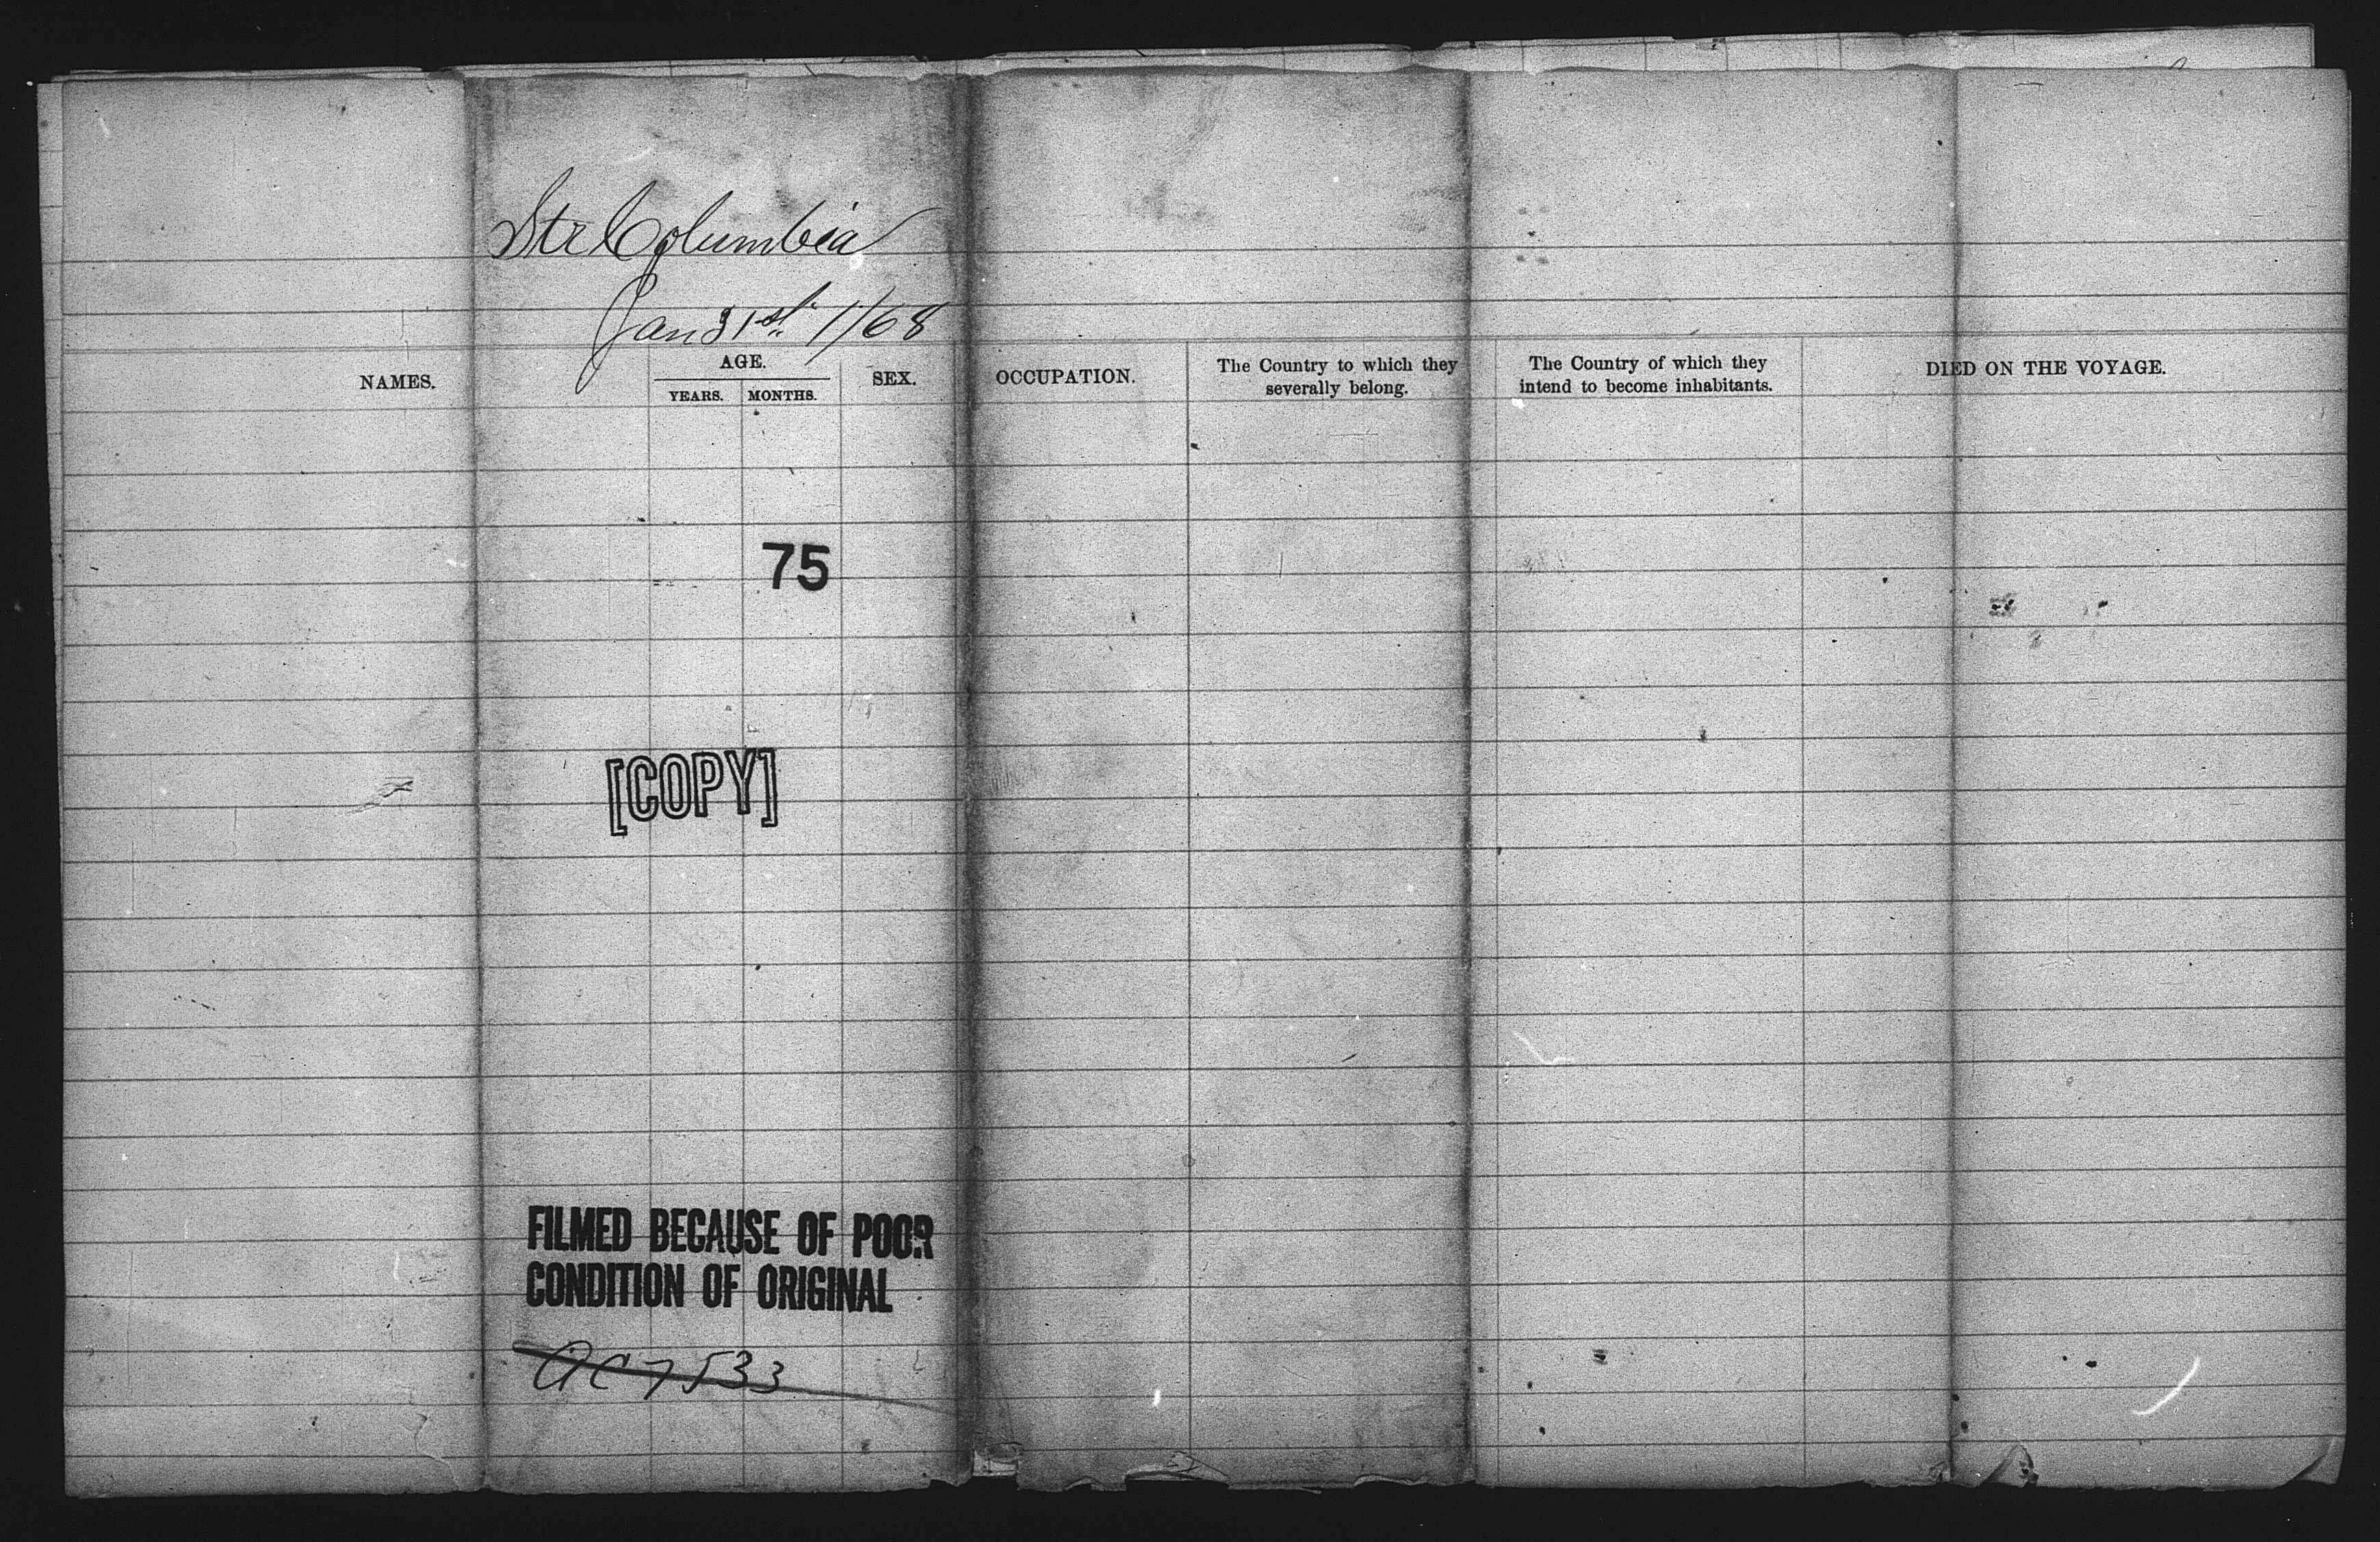 Str Columbia
Jan 31st 1/68
NAMES.
AGE.
YEARS. MONTHS.
SEX.
OCCUPATION.
The Country to which they
severally belong.
The Country of which they
intend to become inhabitants.
DIED ON THE VOYAGE.
75
[COPY]
FILMED BECAUSE OF POOR
CONDITION OF ORIGINAL
AC 7533